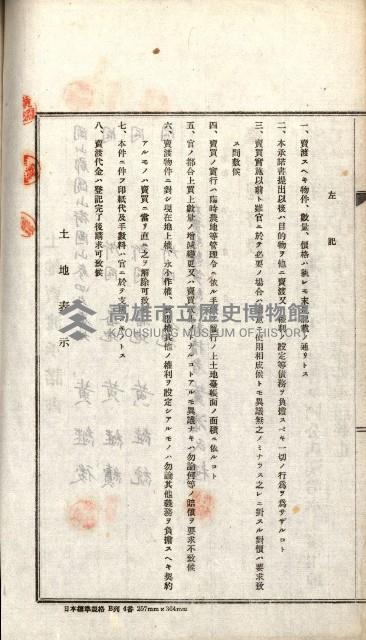 左記
一、賣渡スヘキ物件、數量、價格ハ
二、本承諾書提出以後ハ目的物ヲ他ニ賣渡又ハ權利ノ設定等債務ヲ負擔スベキ一切ノ行爲ヲ爲サザルコト
三、賣買實施以前ト雖官ニ於テ必要ノ場合ハ 使用相成候トモ異議無之ノミナラス之レニ對スル對價ハ要求致
ス間敷候
四、賣買ノ實行ハ臨時農地等管理令ニ依ル手 履行ノ上土地臺帳面ノ面積ニ依ルコト
五、官ノ都合上買上數量ノ增減變更又ハ賣買 ナルコトアルモ異議ナキハ勿論何等ノ賠償ヲ要求不致候
六、賣渡物件ニ對シ現在地上權、永小作權、 其他ノ權利ヲ設定シアルモノハ勿論其他義務ヲ負擔スヘキ契約
アルモノハ賣買ニ當リ直ニ之ヲ解除可致
七、本件ニ伴フ印紙代及手數料ハ官ニ於テ支 トス
八、賣渡代金ハ登記完了後請求可致候
土地表示
高雄市立歷史博物館
KAOHSIUNG MUSEUM OF HISTORY
日本標準規格 B列 4番 257mm×364mm